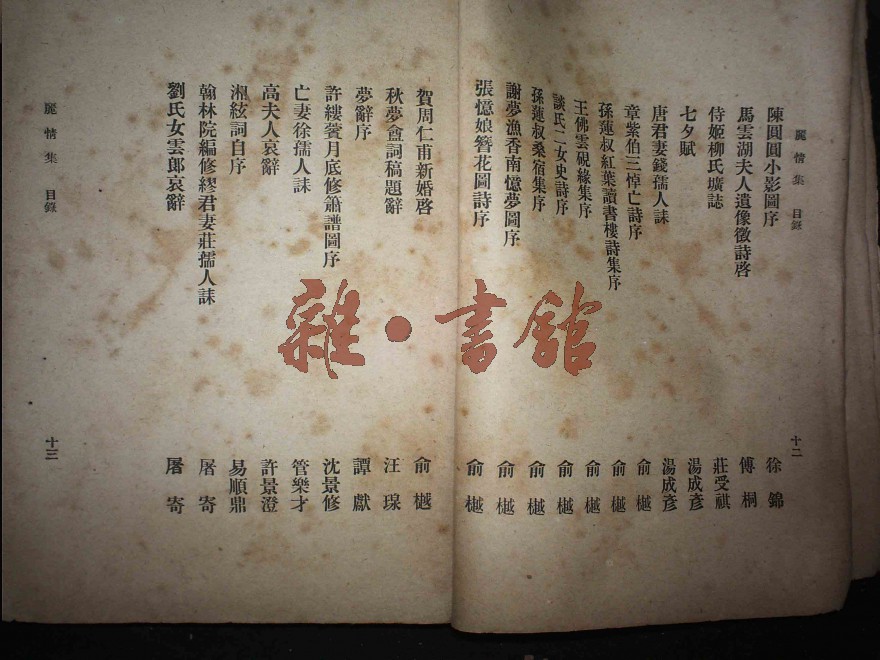 麗情集 目錄
十二
陳圓圓小影圖序 徐錦
馬雲湖夫人遺像徵詩啓 傅桐
侍姬柳氏壙誌 莊受祺
七夕賦 湯成彥
唐君妻錢孺人誄 湯成彥
章紫伯三悼亡詩序 俞樾
孫蓮叔紅葉讀書樓詩集序 俞樾
王佛雲硯緣集序 俞樾
談氏二女史詩序 俞樾
孫蓮叔桑宿集序 俞樾
謝夢漁香南憶夢圖序 俞樾
張憶娘簪花圖詩序 俞樾
賀周仁甫新婚啓 俞樾
秋夢盦詞稿題辭 汪瑔
夢辭序 譚獻
許縷薲月底修簫譜圖序 沈景修
亡妻徐孺人誄 管樂才
高夫人哀辭 許景澄
湘絃詞自序 易順鼎
翰林院編修繆君妻莊孺人誄 屠寄
劉氏女雲郎哀辭 屠寄
麗情集 目錄
十三
雜·書館